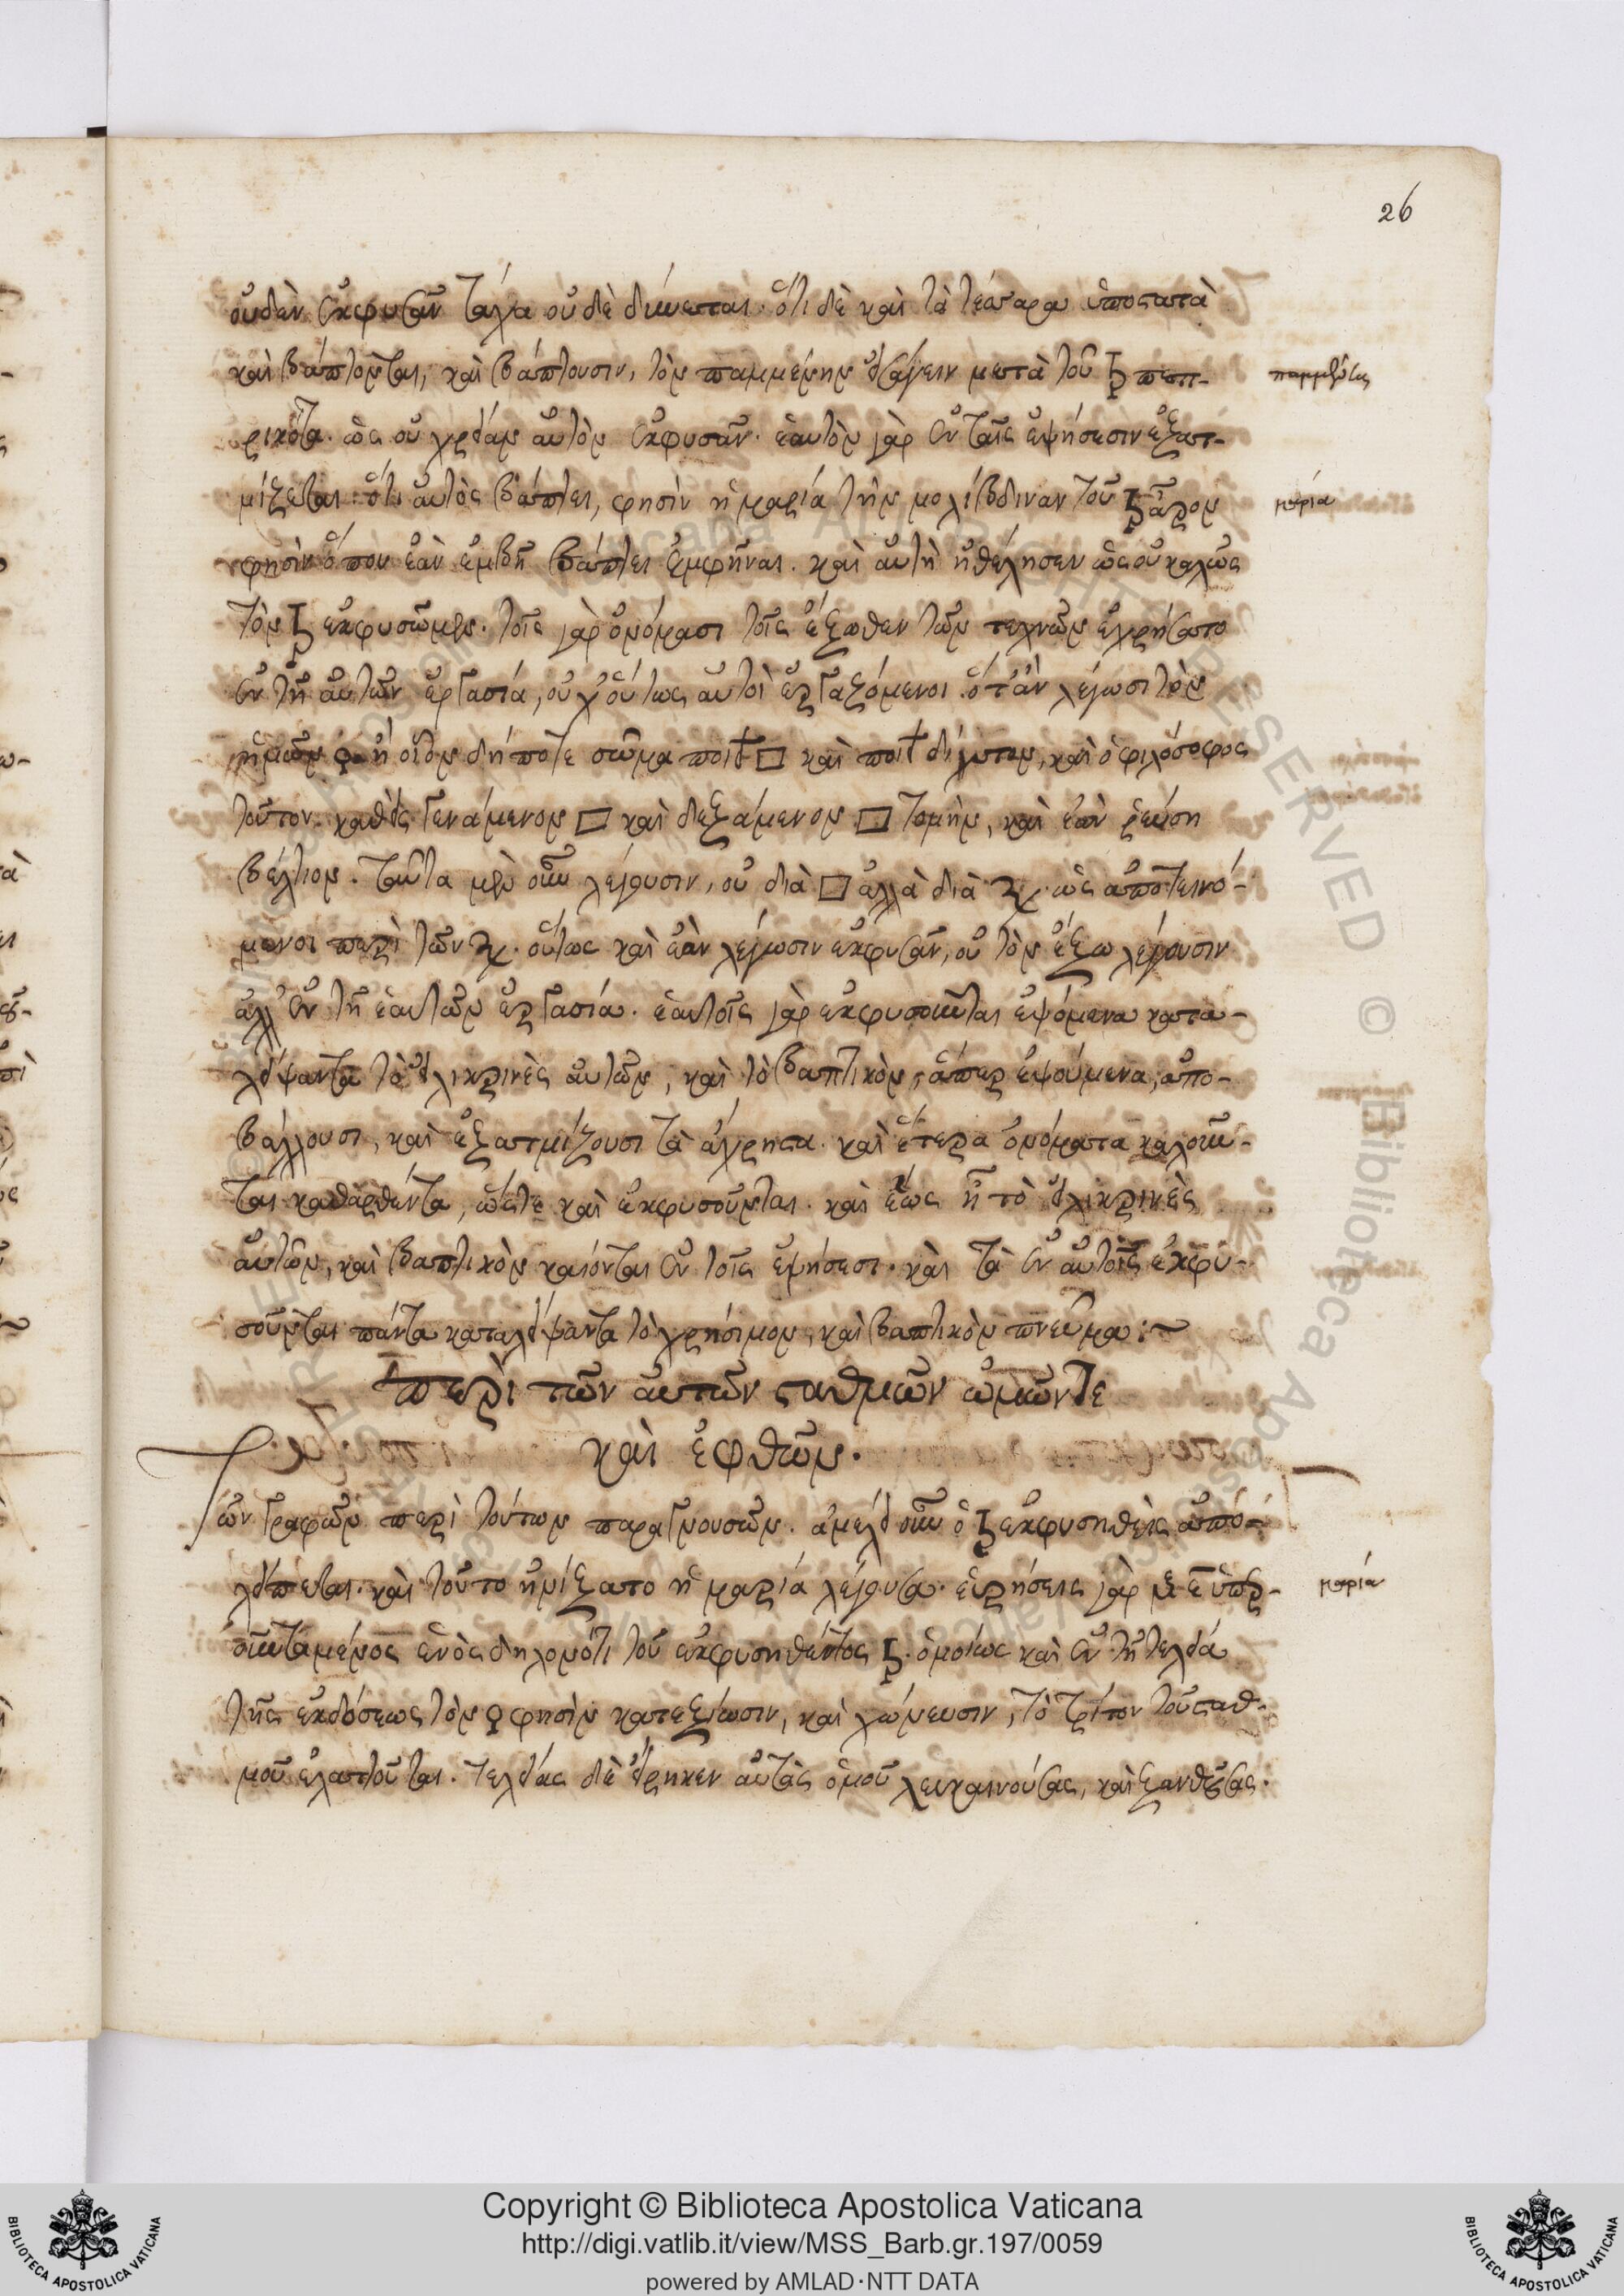 26
οὐδὲν ἐκφυσᾶν τάχα οὐδὲ δύναται. ὅτι δὲ καὶ τὰ τέσσαρα ὑποστατὰ
καὶ βάπτονται, καὶ βάπτουσιν, τὸν παμμένην εἰσάγειν μετὰ τοῦ
παμμένης
ὡς οὐ χρείαν αὐτὸν ἐκφυσᾶν. ἑαυτὸν γὰρ ἐν ταῖς ἑψήσεσιν ἐξατ-
μίζεται. ὅτι αὐτὸς βάπτει, φησὶν ἡ μαρία τὴν μολίβδιναν τοῦ
μαρία
φησὶν ὅπου ἐὰν ἐμβῇ βάπτει ἐμφῆναι. καὶ αὐτὴ ἠθέλησεν ὡς οὐ καλῶς
τὸν ἐκφυσῶμεν. τοῖς γὰρ ὀνόμασι τοῖς ἔξωθεν τῶν τεχνῶν ἐχρήσατο
ἐν τῇ αὐτῶν ἐργασία, οὐχ οὕτως αὐτοὶ ἐργαζόμενοι. ὅτ' ἂν λέγωσι τὸν
ἡμῶν ἢ οἷον δήποτε σῶμα □ καὶ καὶ ὁ φιλόσοφος
τοῦτον γενάμενον □ καὶ δεξάμενον □ τομὴν, καὶ ἐὰν ῥεύσῃ
βέλτιον. ταῦτα μὲν οὖν λέγουσιν, οὐ διὰ □ ἀλλὰ διὰ ὡς ἀποτεινό-
μενοι περὶ τῶν οὕτως καὶ ἐὰν λέγωσιν ἐκφυσᾶν, οὐ τὸν ἔξω λέγουσιν
ἀλλ' ἐν τῇ ἑαυτῶν ἐργασία. ἑαυτοῖς γὰρ ἐκφυσοῦνται ἑψόμενα κατα-
λείψαντα τὸ εἰλικρινὲς αὐτῶν, καὶ τὸ βαπτικὸν, ἅπερ ἑψούμενα, ἀπο-
βάλλουσι, καὶ ἐξατμίζουσι τὰ ἄχρηστα. καὶ ἕτερα ὀνόματα καλοῦν-
ται καθαρθέντα, ὥστε καὶ ἐκφυσοῦνται. καὶ ἕως ἦ τὸ εἰλικρινὲς
αὐτῶν, καὶ βαπτικὸν καίονται ἐν τοῖς ἑψήσεσι. καὶ τὰ ἐν αὐτοῖς ἐκφυ-
σοῦνται πάντα καταλείψαντα τὸ χρήσιμον, καὶ βαπτικὸν πνεῦμα :~
Περὶ τῶν αὐτῶν σταθμῶν ὠμῶν τε
καὶ ἐφθῶν.
Τῶν γραφῶν περὶ τούτων παραγνουσῶν. ἀμέλει οὖν ὁ ἐκφυσηθεὶς ἀπό-
λείπεται. καὶ τοῦτο ἠνίξατο ἡ μαρία λέγουσα. εὑρήσεις γὰρ
μαρία
ἑνὸς δηλονότι τοῦ ἐκφυσηθέντος ὁμοίως καὶ ἐν τῇ τελεία
τῆς ἐκδόσεως τὸν ♀ φησὶν κατεξίωσιν, καὶ χώνευσιν, τὸ τρίτον τοῦ σταθ-
μοῦ ἐλαττοῦται. τελείας δὲ εἴρηκεν αὐτὰς ὁμοῦ λευκαινούσας, καὶ ξανθούσας.
Copyright © Biblioteca Apostolica Vaticana
http://digi.vatlib.it/view/MSS_Barb.gr.197/0059
powered by AMLAD·NTT DATA
BIBLIOTECA APOSTOLICA VATICANA
BIBLIOTECA APOSTOLICA VATICANA